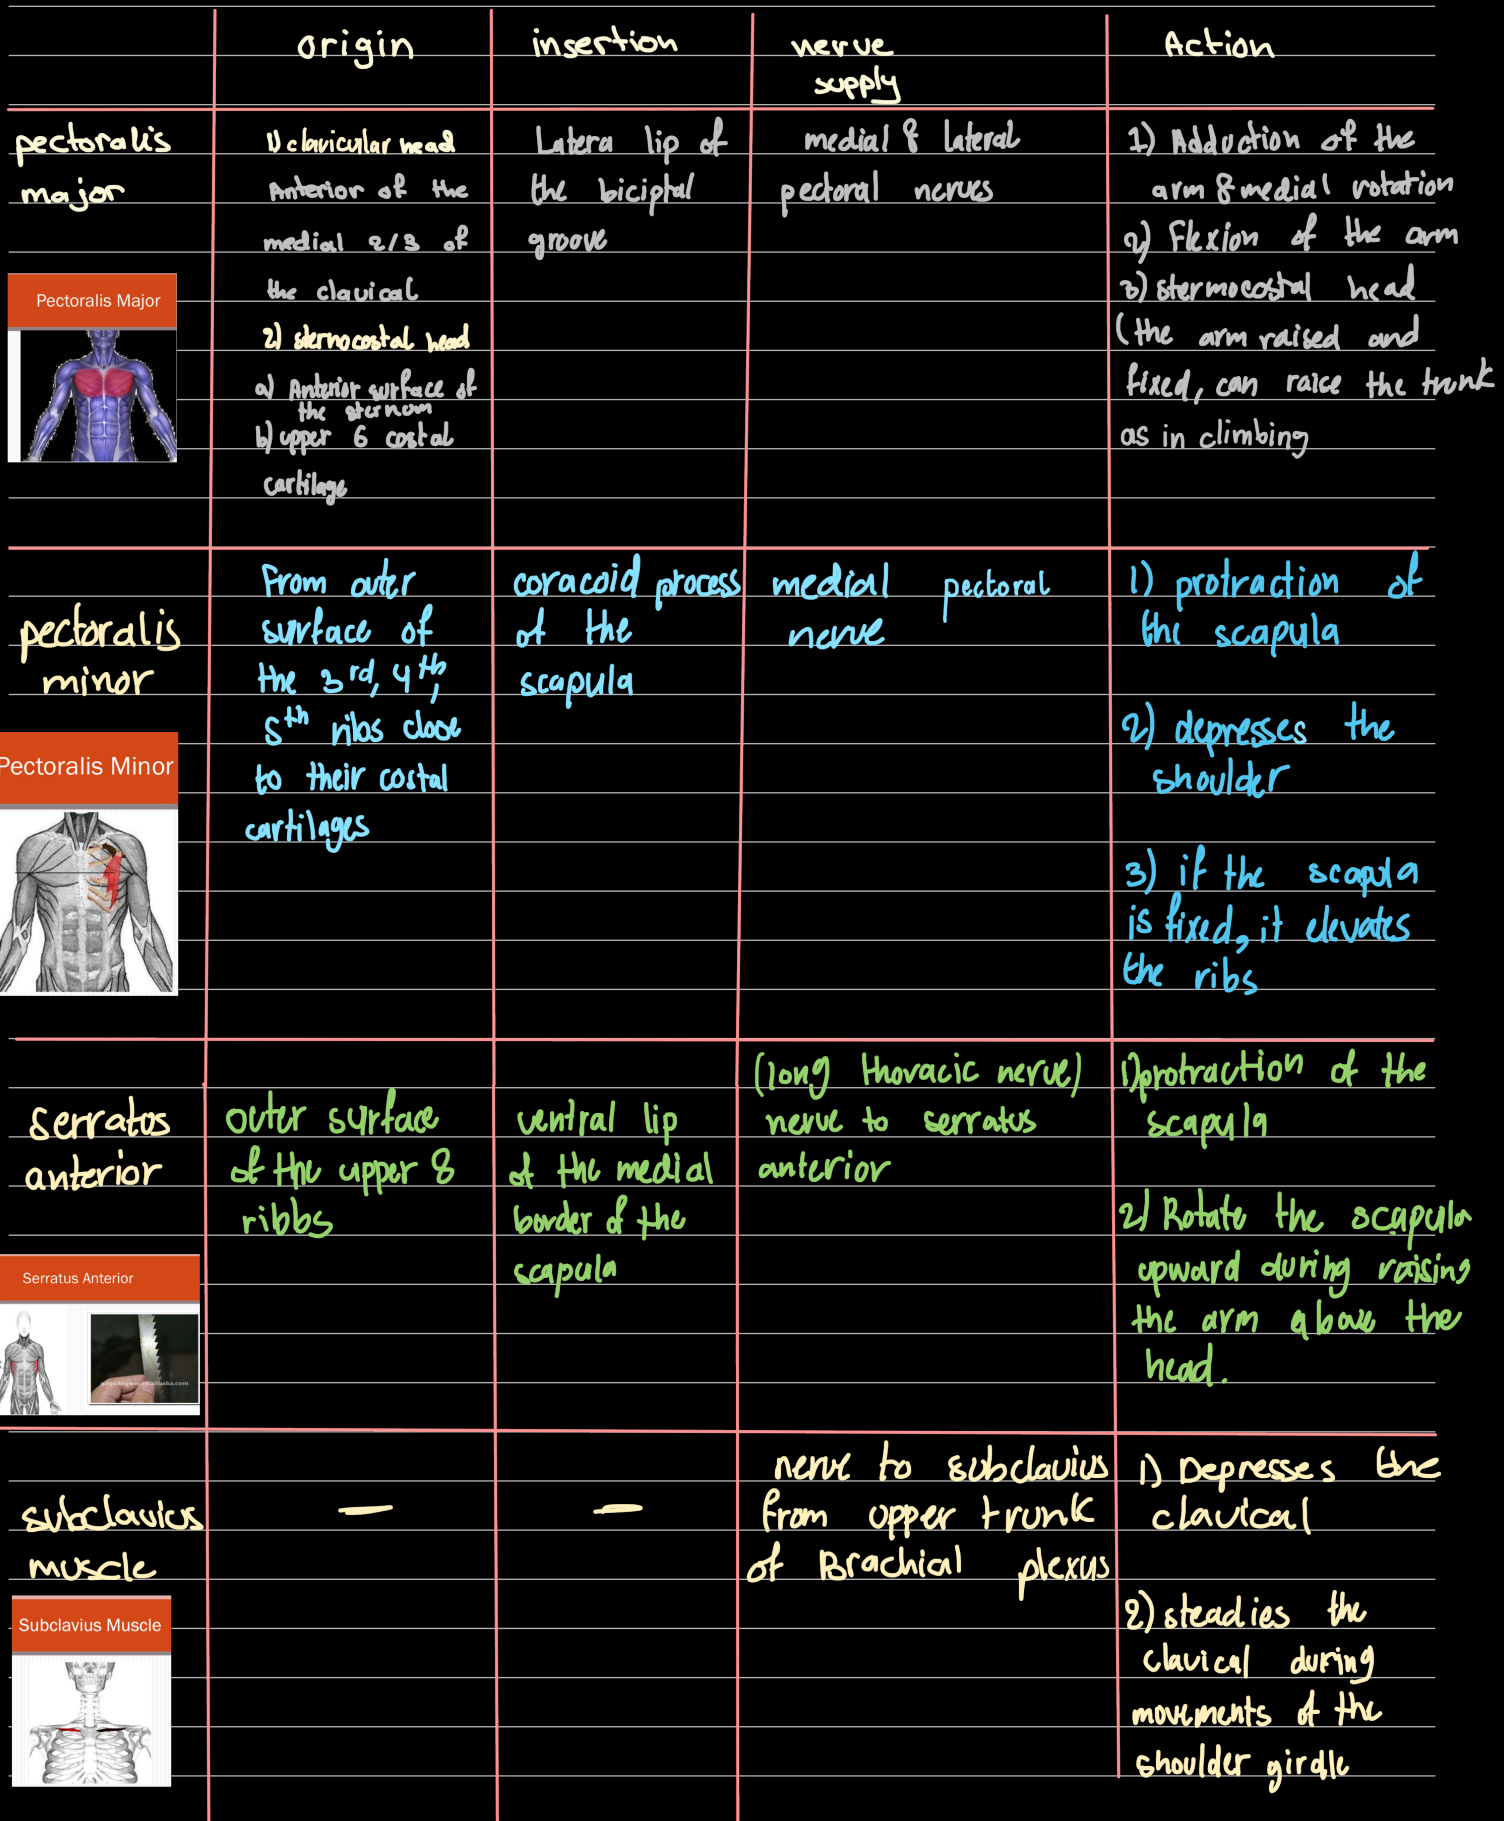 origin
insertion
nerve
supply
Action
pectoralis
major
Pectoralis Major
1) clavicular head
Anterior of the
medial 2/3 of
the clavical
2) sternocostal head
a) Anterior surface of
the sternum
b) upper 6 costal
cartilage
Latera lip of
the biciptal
groove
medial & lateral
pectoral nerves
1) Adduction of the
arm & medial rotation
2) Flexion of the arm
3) stermocostal head
(the arm raised and
fixed, can raice the trunk
as in climbing
pectoralis
minor
Pectoralis Minor
From outer
surface of
the 3rd, 4th,
5th ribs close
to their costal
cartilages
coracoid process
of the
scapula
medial pectoral
nerve
1) protraction of
the scapula
2) depresses the
shoulder
3) if the scapula
is fixed, it elevates
the ribs
serratos
anterior
Serratus Anterior
outer surface
of the upper 8
ribbs
ventral lip
of the medial
border of the
scapula
(long thoracic nerve)
nerve to serratus
anterior
1) protraction of the
scapula
2) Rotate the scapula
upward during raising
the arm above the
head.
subclavius
muscle
Subclavius Muscle
—
—
nerve to subclavius
from upper trunk
of Brachial plexus
1) Depresses the
clavical
2) steadies the
clavical during
movements of the
shoulder girdle